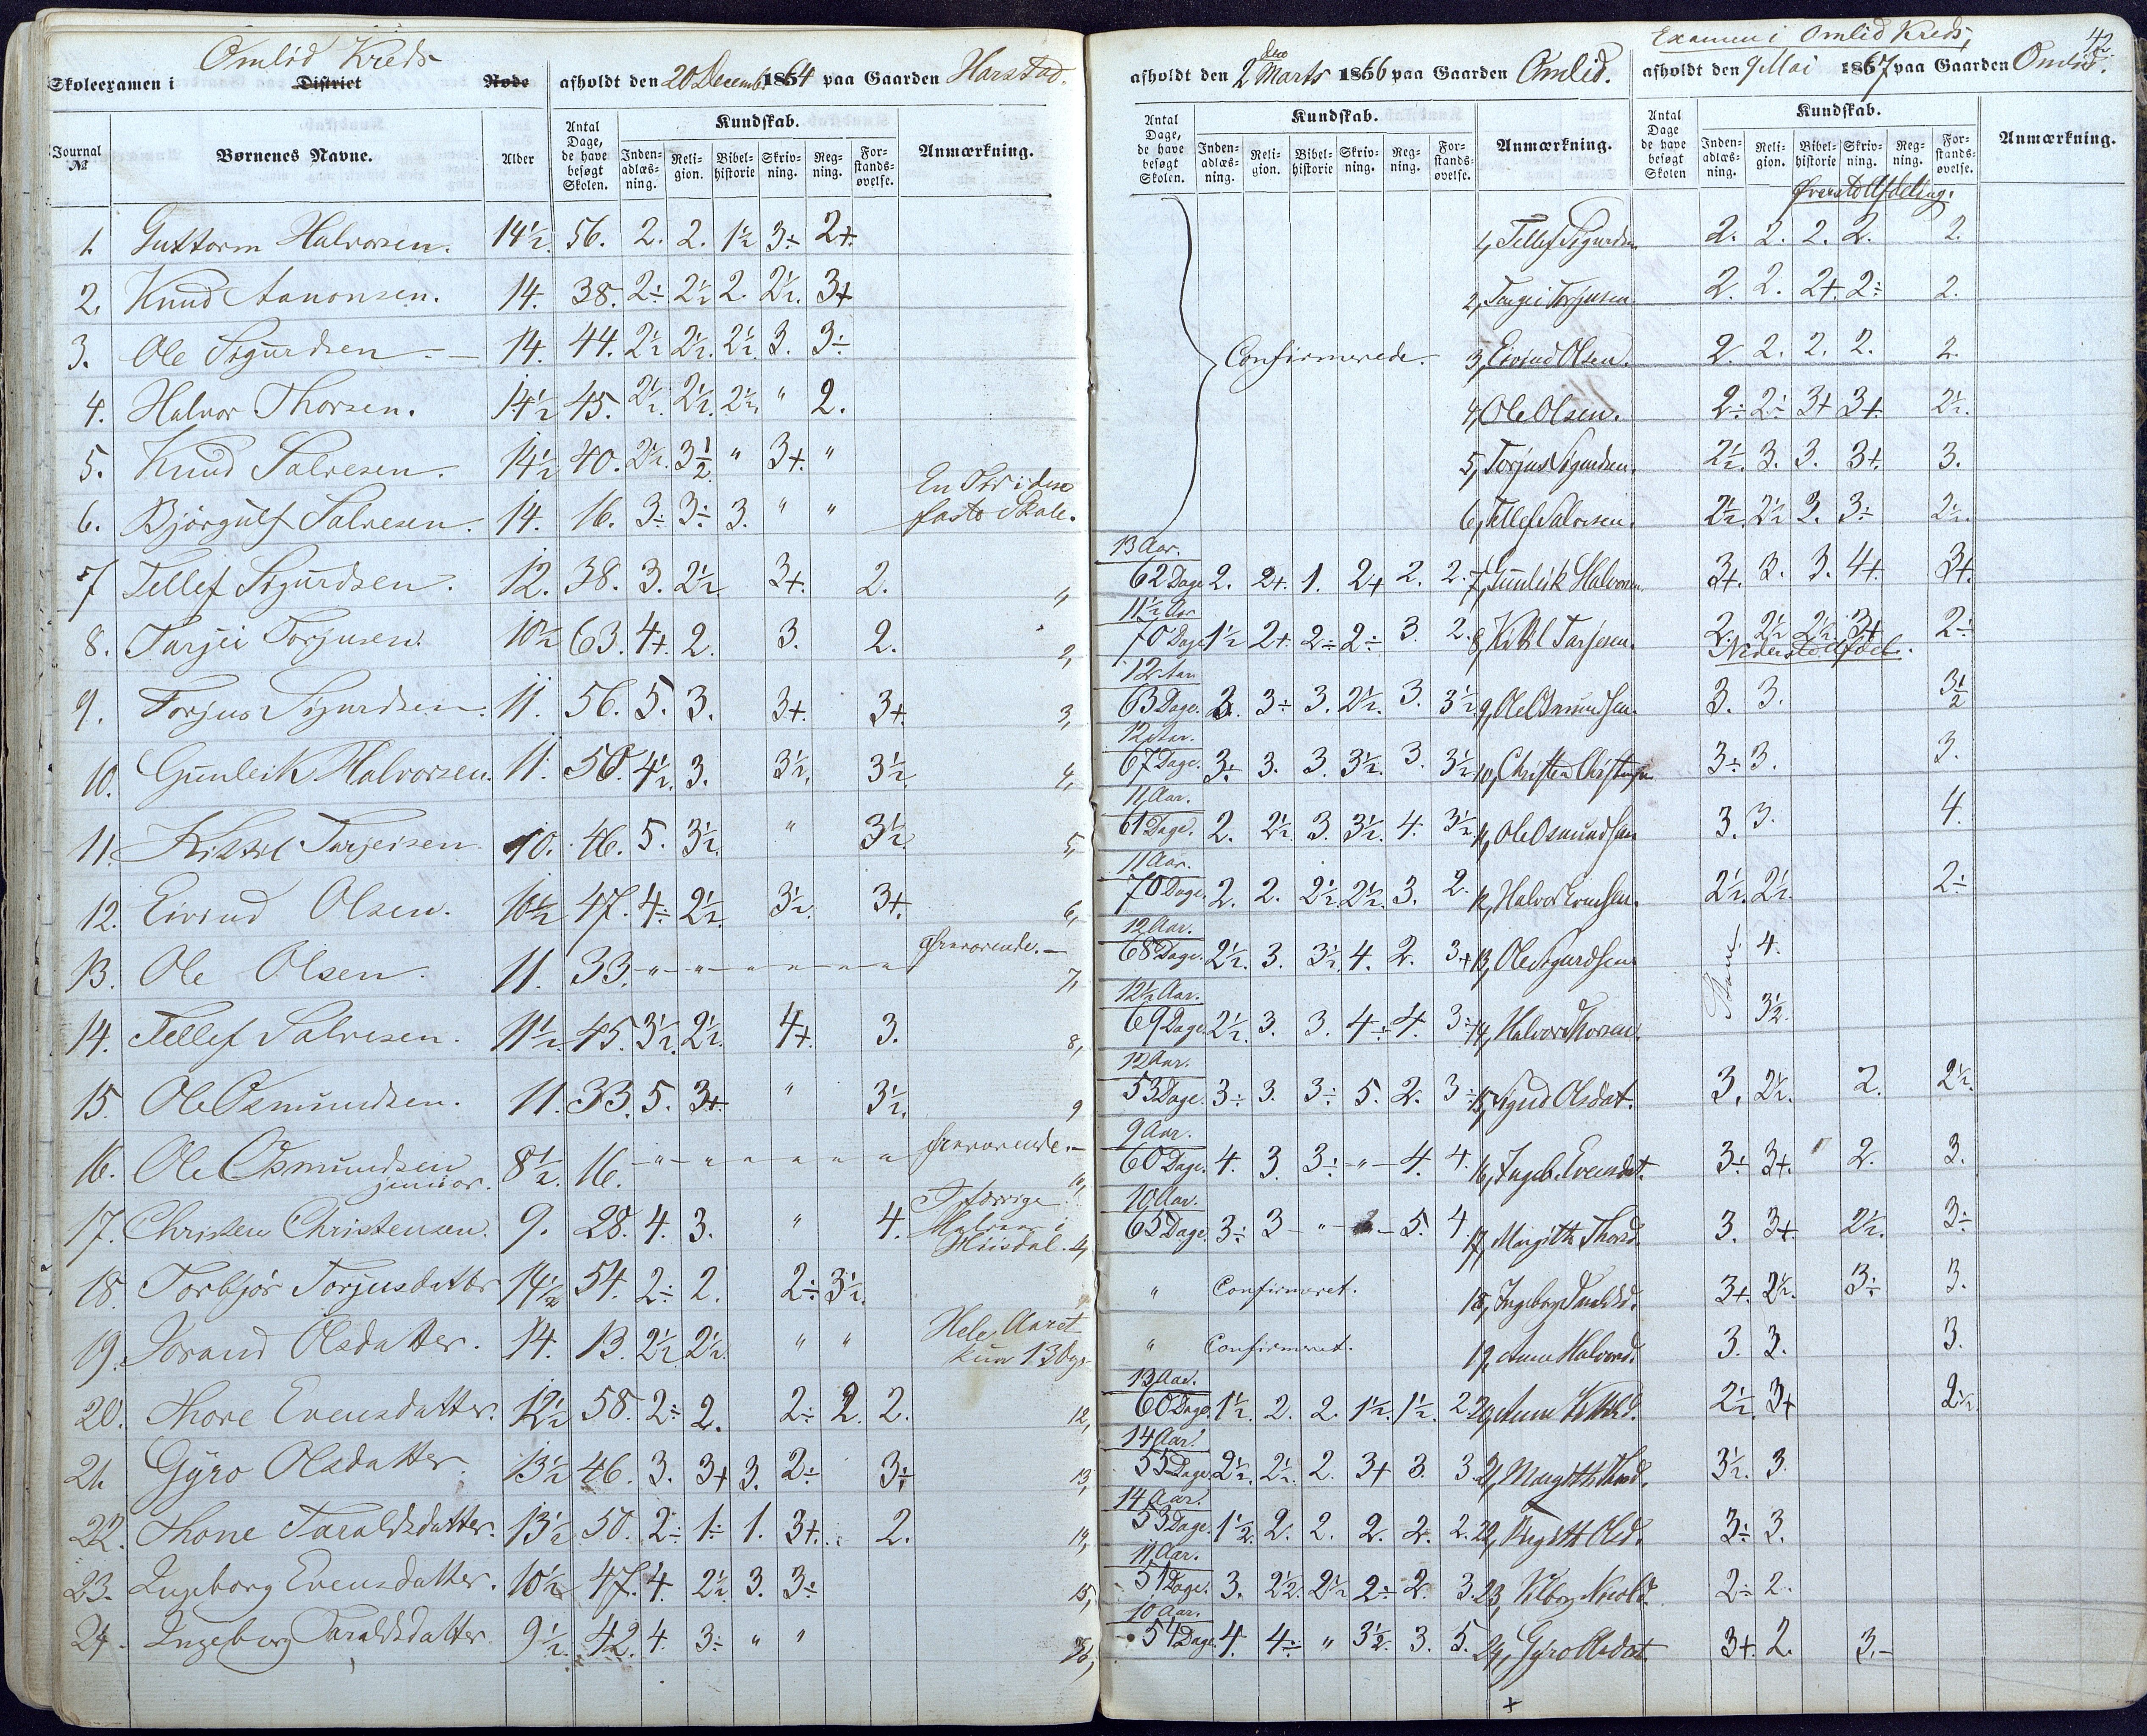 Omlid Kreds
Skoleexamen i District Rode afholdt den 20 Decemb. 1864 paa Gaarden Harstad.
Journal № Børnenes Navne. Alder Antal Dage, de have besøgt Skolen. Kundskab. Anmærkning.
Inden-adlæs-ning. Reli-gion. Bibel-historie Skriv-ning. Reg-ning. For-stands-øvelse.
1. Guttorm Halvorsen. 14½ 56. 2. 2. 1½ 3÷ 2+.
2. Knud Aanonsen. 14. 38. 2÷ 2½ 2. 2½. 3+
3. Ole Sigurdsen 14. 44. 2½ 2½. 2½. 3. 3÷
4. Halvor Thorsen. 14½ 45. 2½. 2½. 2½. " 2.
5. Knud Salvesen. 14½ 40. 2½. 3½ " 3+. "
6. Bjørgulf Salvesen. 14. 16. 3÷ 3÷ 3. " " faste Skole.
7 Tellef Sigurdsen. 12. 38. 3. 2½ 3+. 2.
8. Tarjei Torjusen. 10½ 63. 4+. 2. 3. 2. 2,
9. Torjus Sigurdsen. 11. 56. 5. 3. 3+. 3+. 3,
10. Gunleik Halvorsen. 11. 50. 4½. 3. 3½. 3½. 4,
11. Kittil Tarjeisen 10. 46. 5. 3½. " 3½. 5,
12. Eivind Olsen. 10½ 47. 4÷ 2½ 3½. 3+. 6,
13. Ole Olsen. 11. 33. " " " " " " Fraværende. 7,
14. Tellef Salvesen. 11½ 45. 3½. 2½. 4+. 3. 8,
15. Ole Osmundsen. 11. 33. 5. 3+. " 3½. 9
16. Ole Osmundsen junior. 8½. 16. " " " " " Fraværende.
17. Christen Christensen. 9. 28. 4. 3. " 4.
18. Torbjør Torjusdatter 14½ 54. 2÷ 2. 2÷ 3½.
19. Jorand Olsdatter. 14. 13. 2½ 2½. " " Hele Aaret kun 13 Dage
20. Thore Evensdatter. 12½ 58. 2÷ 2. 2÷ 2. 2. 12,
21. Gyro Olsdatter 13½ 46. 3. 3+ 3. 2÷ 3÷ 13,
22. Thone Taraldsdatter. 13½ 50. 2÷ 1÷ 1. 3+. 2. 14,
23. Ingeborg Evensdatter. 10½ 47. 4. 2½ 3. 3÷ 15,
24. Ingeborg Taraldsdatter. 9½. 42. 4. 3÷ " " 16,
42.
afholdt den 2den Marts 1866 paa Gaarden Omlid.
Antal Dage, de have besøgt Skolen. Kundskab. Anmærkning.
Inden-adlæs-ning. Reli-gion. Bibel-historie Skriv-ning. Reg-ning. For-stands-øvelse.
Confirmerede.
13 Aar.
62 Dage 2. 2+. 1. 2+ 2. 2.
11½ Aar
70 Dage 1½ 2+ 2÷ 2÷ 3. 2.
12 Aar
63 Dage. 3. 3÷ 3. 2½. 3. 3½
12 Aar.
67 Dage. 3÷ 3. 3. 3½. 3. 3½
11 Aar.
61 Dage. 2. 2½. 3. 3½. 4. 3½
11 Aar.
70 Dage. 2. 2. 2½ 2½. 3. 2.
12 Aar.
68 Dage. 2½. 3. 3½. 4. 2. 3+
12½ Aar.
69 Dage 2½. 3. 3. 4÷ 4. 3÷
12 Aar.
53 Dage. 3÷ 3. 3÷ 5. 2. 3÷
9 Aar.
60 Dage. 4. 3 3÷ " 4. 4.
10 Aar.
65 Dage. 3÷ 3 " 5. 4.
" Confirmeret.
" Confirmeret.
13 Aar.
60 Dage 1½. 2. 2. 1½. 1½. 2.
14 Aar.
55 Dage 2½. 2½. 2. 3+ 3. 3.
14 Aar.
53 Dage. 1½. 2. 2. 2. 2. 2.
11 Aar.
51 Dage. 3. 2½. 2½ 2÷ 2. 3.
10 Aar.
54 Dage 4. 4÷ " 3½. 3. 5.
Examen i Omlid Kreds,
afholdt den 9 Mai 1867 paa Gaarden Omlid.
Antal Dage de have besøgt Skolen Kundskab. Anmærkning.
Inden-adlæs-ning. Reli-gion. Bibel-historie Skriv-ning. Reg-ning. For-stands-øvelse.
Øverste Afdeling.
1, Tellef Sigurdsen 2. 2. 2. 2. 2.
2, Targei Torjusen 2. 2. 2+. 2÷ 2.
3, Eivind Olsen. 2. 2. 2. 2. 2.
4, Ole Olsen. 2÷ 2÷ 3+ 3+. 2½.
5, Torjus Sigurdsen. 2½. 3. 3. 3+. 3.
6, Tellef Salvesen. 2½. 2½ 3. 3÷ 2½.
7, Gunleik Halvorsen. 3+. 3. 3. 4+. 3+.
8, Kittil Tarjesen. 2. 2½ 2½. 3+ 2÷
Nederste Afdel.
9, Ole Osmundsen. 3. 3. 3½
10, Christen Christensen 3÷ 3. 3.
11, Ole Osmundsen 3. 3. 4.
12, Halvor Evensen. 2½. 2½. 2÷
13, Ole Sigurdsen 4.
14, Halvor Thorsen. 3½.
15, Sigrid Olsdat. 3. 2½. 2. 2½.
16, Ingeb. Evensdat. 3÷ 3+. 2. 3.
17, Margitte Thorsd. 3. 3+. 2½. 3÷
18, Ingeborg Taraldsd. 3+. 2½. 3÷ 3.
19, Anne Halvorsd. 3. 3. 3.
20, Anne Kittilsd. 2½. 3+ 2½.
21, Margitte 3½. 3.
22, Birgitt Olsd. 3÷ 3.
23, 2÷ 2.
24, Gyro Olsdat. 3+. 2. 3.
+